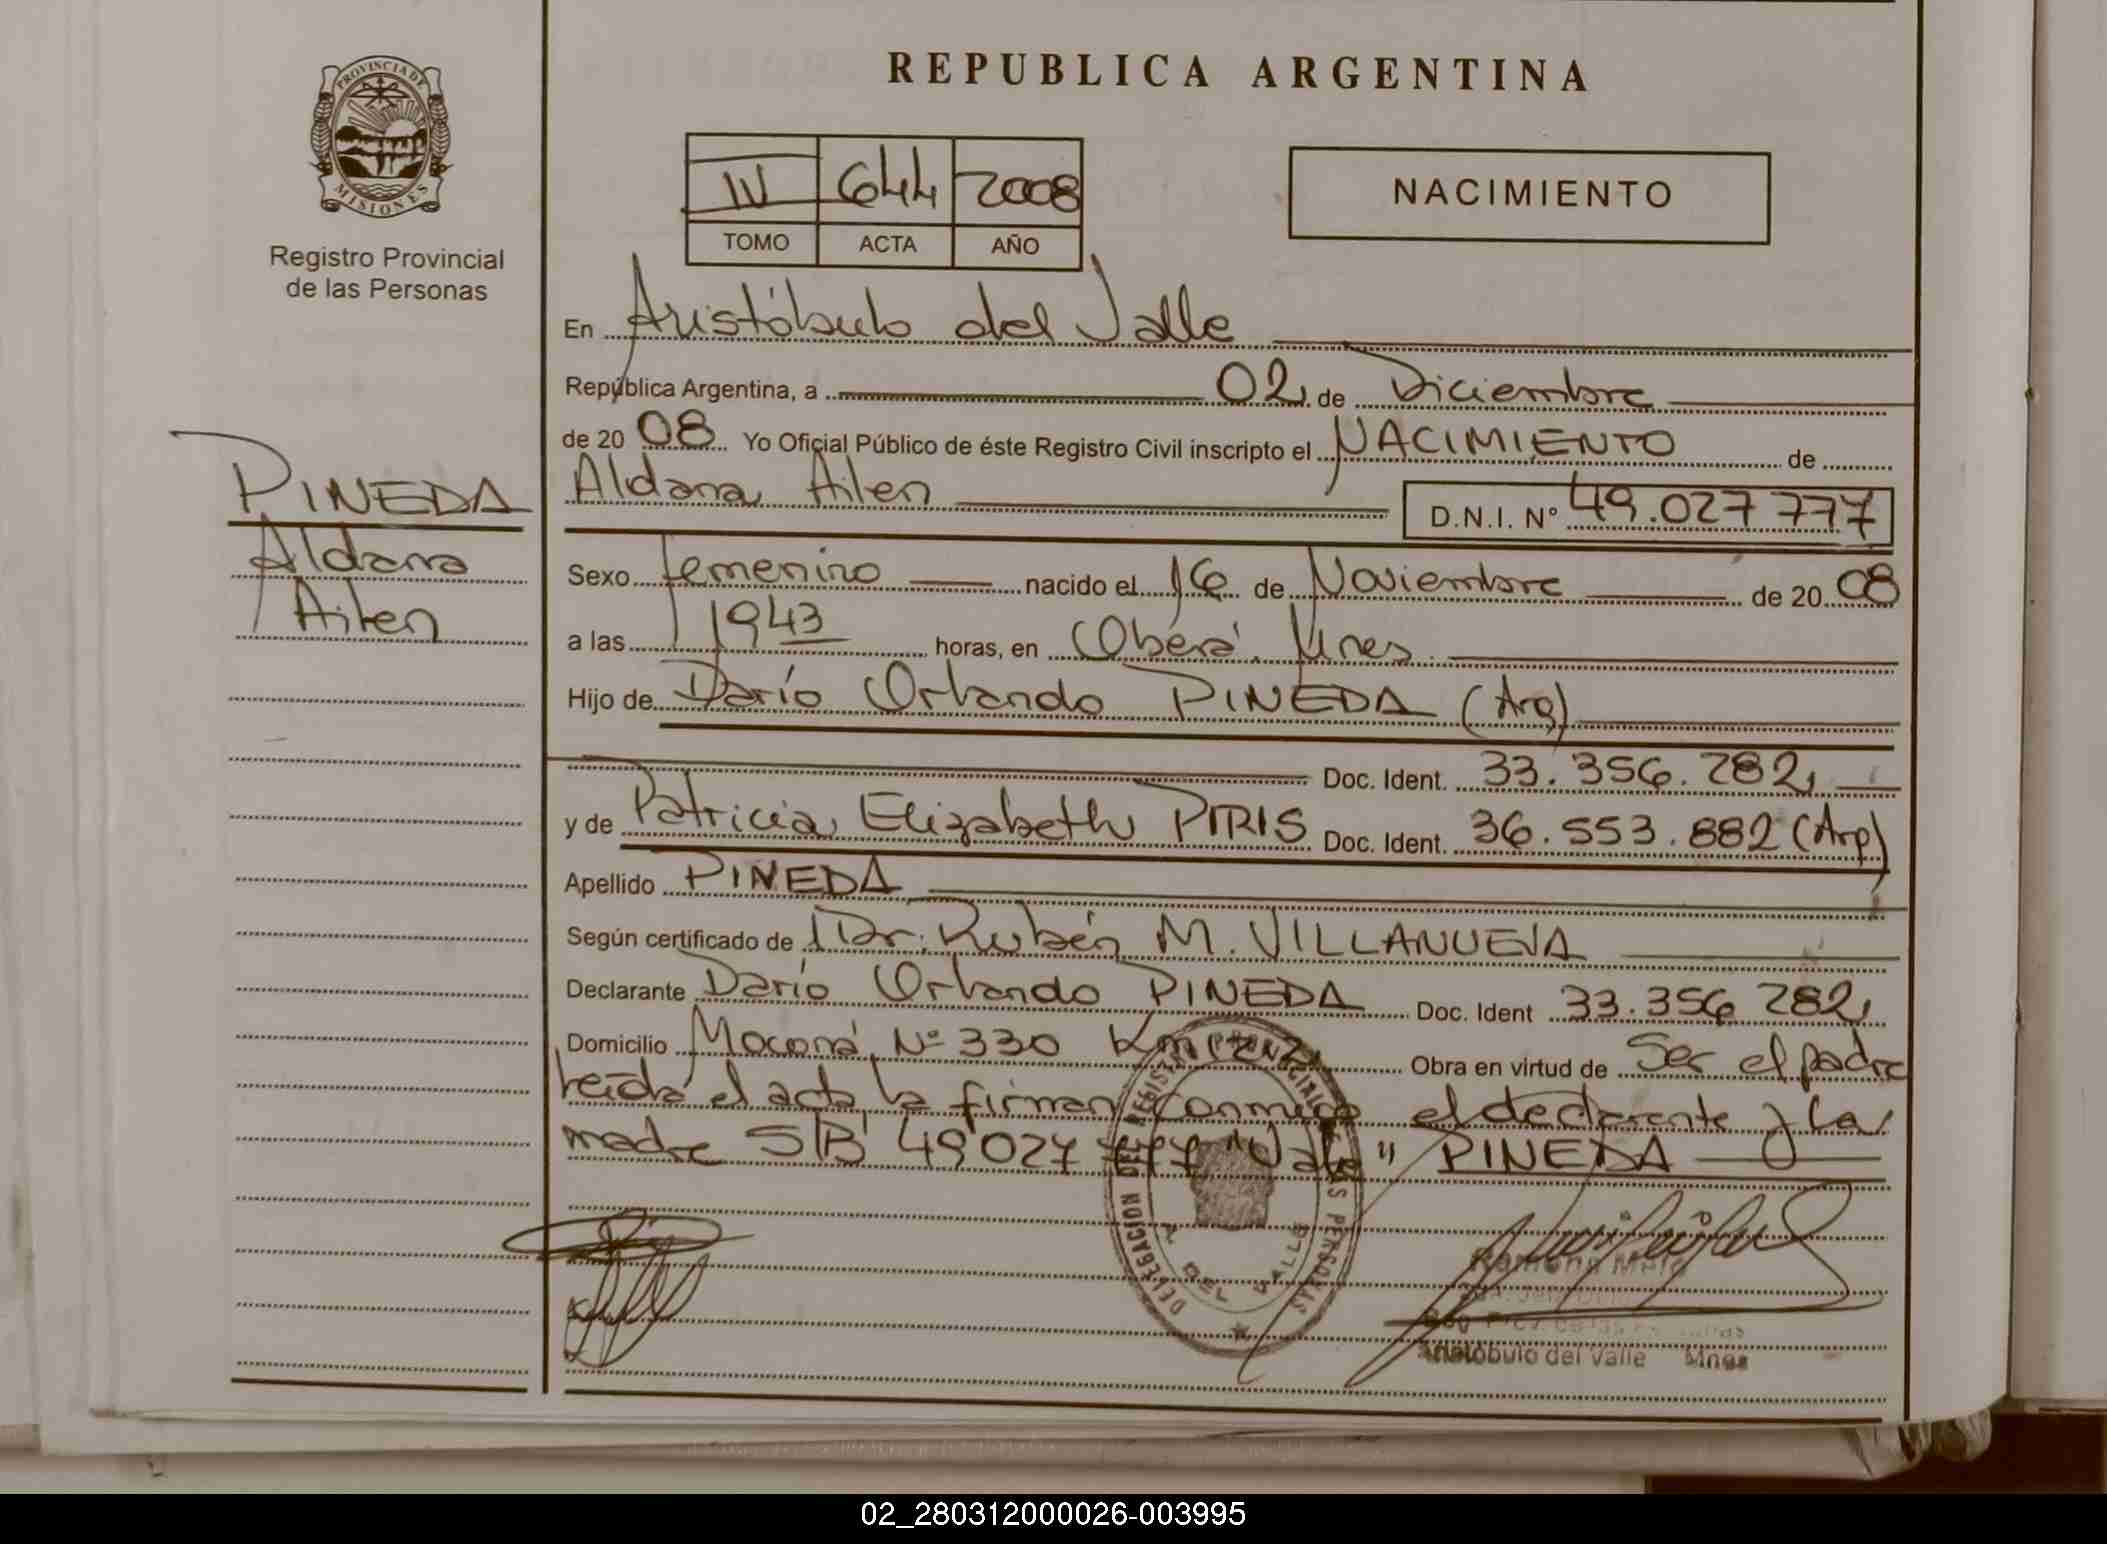 PROVINCIA DE
MISIONES
Registro Provincial
de las Personas
REPUBLICA ARGENTINA
IV 644 2008
TOMO ACTA AÑO
NACIMIENTO
En Aristóbulo del Valle
República Argentina, a 02 de Diciembre
de 20 08 Yo Oficial Público de éste Registro Civil inscripto el NACIMIENTO de
Aldana Ailen D.N.I. Nº 49.027 777
PINEDA
Aldana
Ailen
Sexo femenino nacido el 16 de Noviembre de 20 08
a las 1943 horas, en Oberá, Mnes.
Hijo de Darío Orlando PINEDA (Arg)
Doc. Ident. 33.356.282
y de Patricia Elizabeth PIRIS Doc. Ident. 36.553.882 (Arg)
Apellido PINEDA
Según certificado de Dr. Rubén M. VILLANUEVA
Declarante Darío Orlando PINEDA Doc. Ident 33.356 282
Domicilio Moconá Nº 330 Obra en virtud de Ser el padre
leída el acta la firman conmigo el declarante y la
madre S/B 49 027 777 "Vale" PINEDA
DELEGACION DEL REGISTRO PROVINCIAL DE LAS PERSONAS
DEL VALLE
Ramona
Aristóbulo del Valle Mnes
02_280312000026-003995